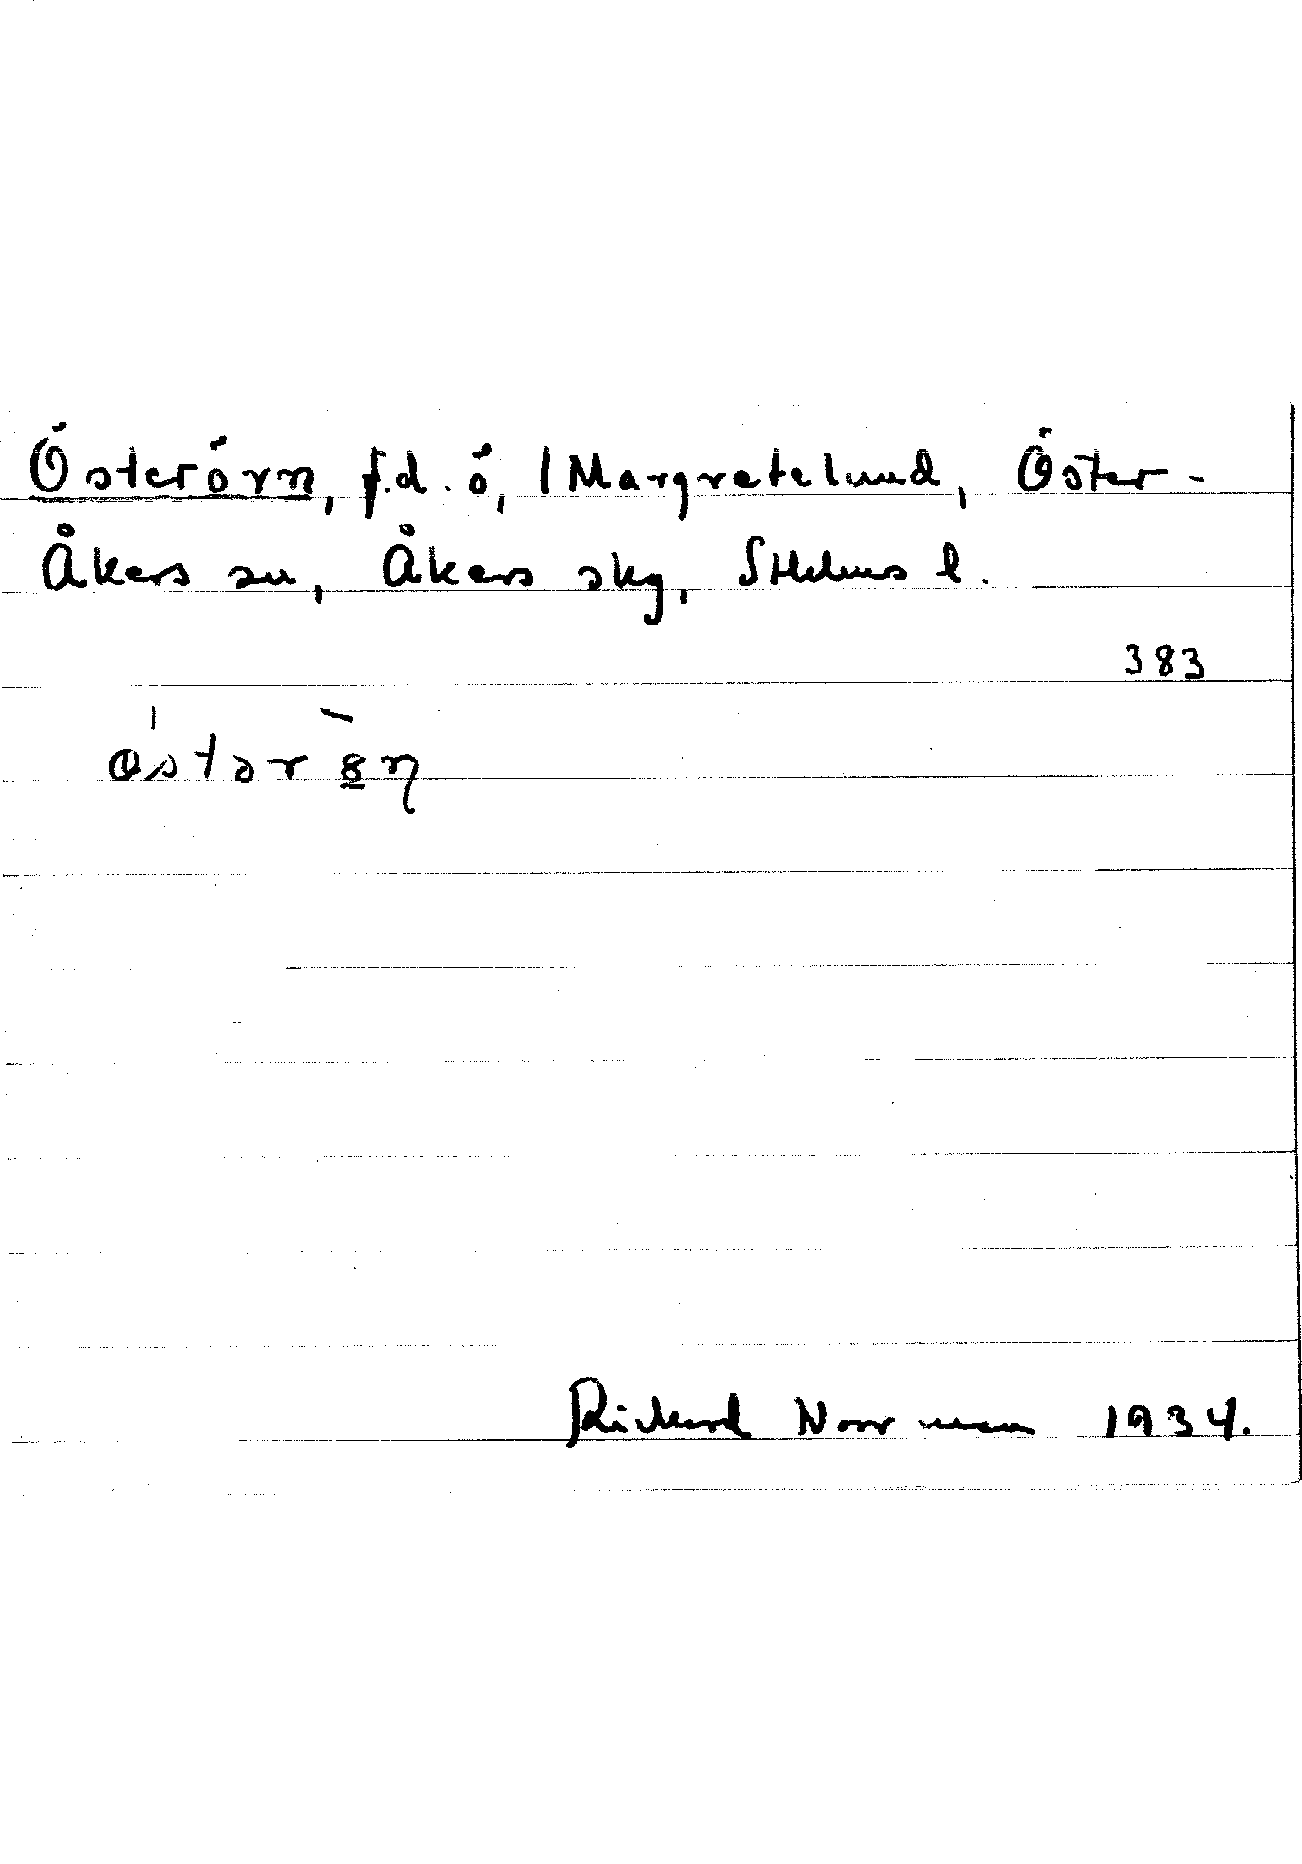 Österörn, f.d. ö, /Margretelund, Öster-
Åkers sn, Åkers skg, Sthlms l.
383
Rickard Norrman 1934.